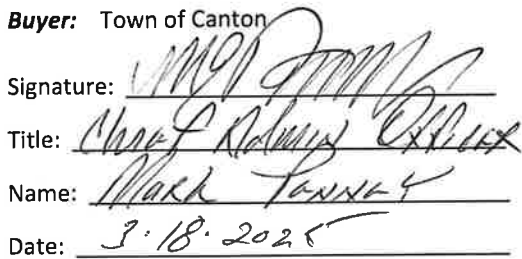 Buyer: Town of Canton
Signature:
Title: Chief Admin Officer
Name: Mark
Date: 3.18.2025